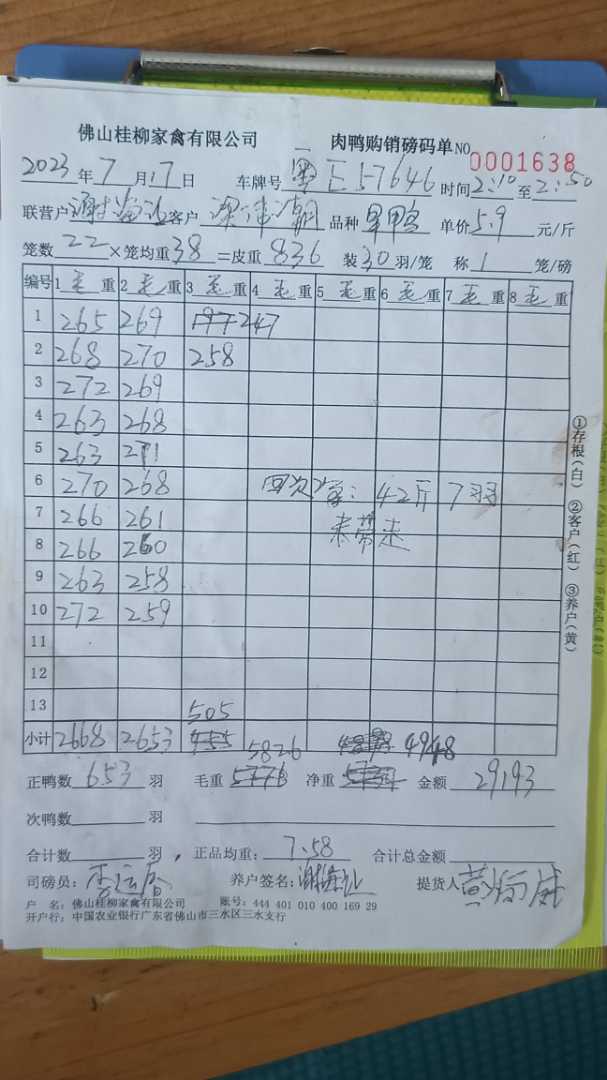 佛山桂柳家禽有限公司 肉鸭购销磅码单 NO 0001638
2023年7月17日 车牌号 粤E57646 时间2:10至2:50
联营户 客户 品种 单价5.9元/斤
笼数22×笼均重38=皮重836 装30羽/笼 称1笼/磅
编号 1毛重 2毛重 3毛重 4毛重 5毛重 6毛重 7毛重 8毛重
1 265 269 197 247
2 268 270 258
3 272 269
4 263 268
5 263 271
6 270 268 回次鸭:42斤7羽
7 266 261 未带走
8 266 260
9 263 258
10 272 259
11
12
13 505
小计 2668 2653 455 5826 4948
正鸭数653羽 毛重5776 净重 金额29193
次鸭数 羽
合计数 羽, 正品均重:7.58 合计总金额
司磅员: 养户签名: 提货人
户 名:佛山桂柳家禽有限公司 账号:444 401 010 400 169 29
开户行:中国农业银行广东省佛山市三水区三水支行
①存根(白) ②客户(红) ③养户(黄)